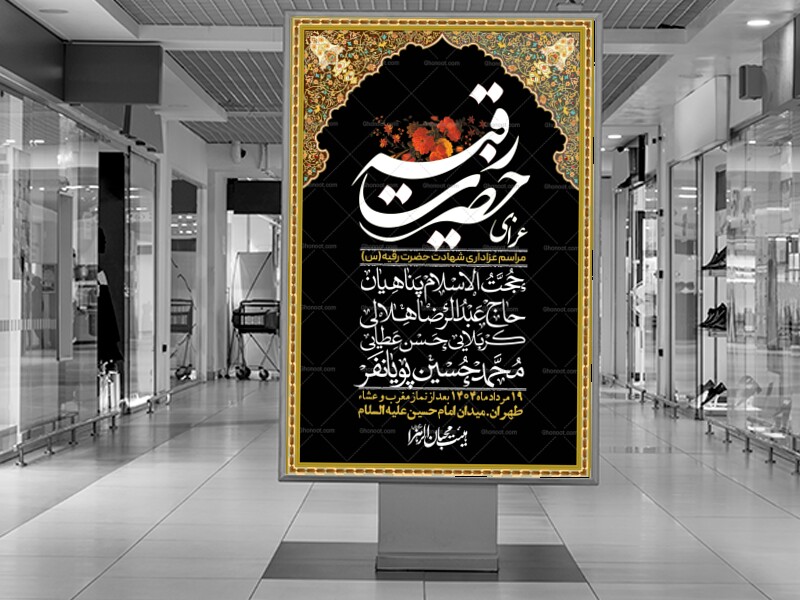 عزای
حضرت
رقیه
مراسم عزاداری شهادت حضرت رقیه (س)
حجت الاسلام پناهیان
حاج عبدالرضا هلالی
کربلایی حسن عطایی
محمدحسین پویانفر
۱۹ مرداد ماه ۱۴۰۴ بعد از نماز مغرب و عشاء
طهران.میدان امام حسین علیه السلام
هیئت محبان الزهرا
Ghonoot.com